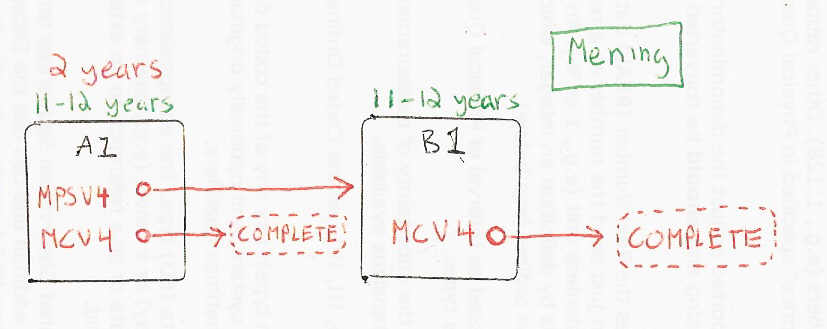 Mening
2 years
11-12 years
A1
MPSV4
MCV4
COMPLETE
11-12 years
B1
MCV4
COMPLETE